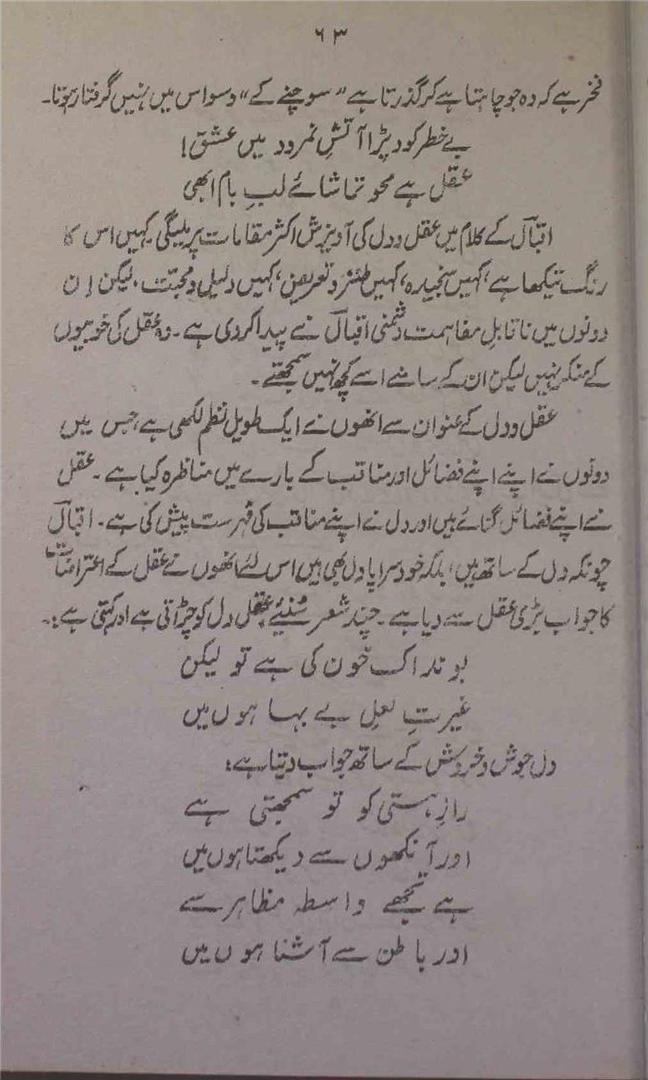 ۶۳
فخر ہے کہ وہ جو چاہتا ہے کر گذرتا ہے "سوچنے کے" وسواس میں نہیں گرفتار ہوتا۔
بے خطر کود پڑا آتشِ نمرود میں عشق!
عقل ہے محوِ تماشائے لبِ بام ابھی
اقبالؔ کے کلام میں عقل و دل کی آویزش اکثر مقامات پر ملیگی۔ کہیں اس کا
رنگ تیکھا ہے، کہیں سنجیدہ، کہیں طنز و تعریض، کہیں دلیل و محبت، لیکن اِن
دونوں میں ناقابلِ مفاہمت دشمنی اقبالؔ نے پیدا کر دی ہے۔ وہ عقل کی خوبیوں
کے منکر نہیں لیکن ان کے سامنے اسے کچھ نہیں سمجھتے۔
عقل و دل کے عنوان سے انھوں نے ایک طویل نظم لکھی ہے، جس میں
دونوں نے اپنے اپنے فضائل اور مناقب کے بارے میں مناظرہ کیا ہے۔ عقل
نے اپنے فضائل گنائے ہیں اور دل نے اپنے مناقب کی فہرست پیش کی ہے۔ اقبالؔ
چونکہ دل کے ساتھ ہیں، بلکہ خود سراپا دل بھی ہیں اس لئے انھوں نے عقل کے اعتراضات
کا جواب بڑی عقل سے دیا ہے۔ چند شعر سُنیئے عقل دل کو چڑاتی ہے اور کہتی ہے:۔
بوند اک خون کی ہے تو لیکن
غیرتِ لعلِ بے بہا ہوں میں
دل جوش و خروش کے ساتھ جواب دیتا ہے:
رازِ ہستی کو تو سمجھتی ہے
اور آنکھوں سے دیکھتا ہوں میں
ہے تجھے واسطہ مظاہر سے
اور باطن سے آشنا ہوں میں